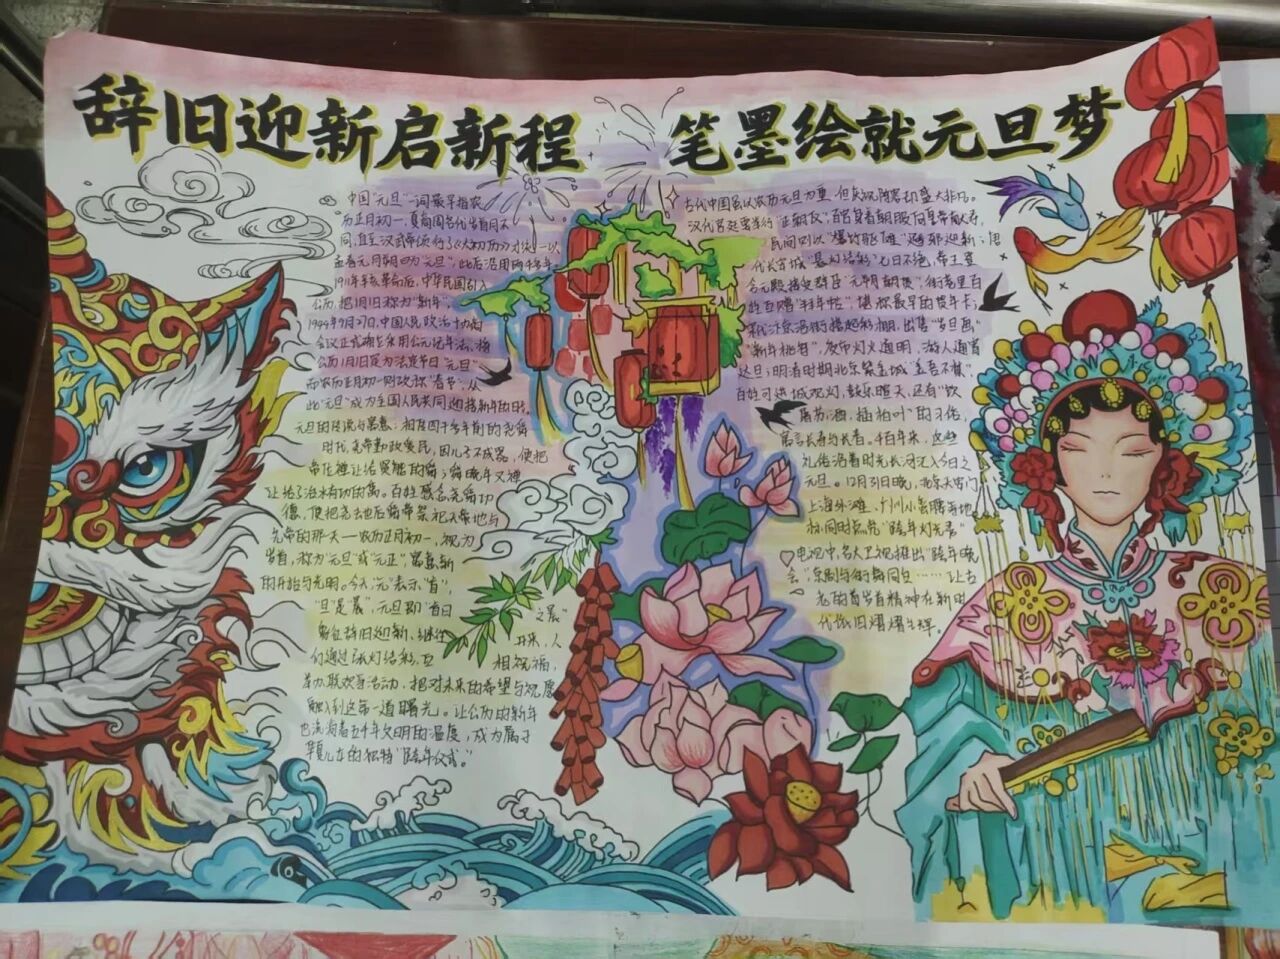 辞旧迎新启新程 笔墨绘就元旦梦
中国"元旦"一词最早指农
历正月初一，夏商周各代岁首月不
同，直至汉武帝颁行了《太初历》才统一以
孟春元月朔日为"元旦"，此后沿用两千多年。
1911年辛亥革命后，中华民国引入
公历，把1月1日称为"新年"，
1949年9月27日，中国人民政治协商
会议正式确定采用公元纪年法，将
公历1月1日定为法定节日"元旦"
而农历正月初一则改称"春节"，从
此"元旦"成为全国人民共同迎接新年的日子。
元旦的传说与寓意：相传四千多年前的尧舜
时代，尧帝勤政爱民，因儿子不成器，便把
帝位禅让给贤能的舜；舜晚年又禅
让给了治水有功的禹。百姓感念尧舜功
德，便把尧去世后舜帝祭祀天帝地与
先帝的那天—农历正月初一，视为
岁首，称为元旦或"元正"，寓意新
的开始与光明。今人"元"表示"首"，
"旦"是"晨"，元旦即"首日之晨"
寓含辞旧迎新、继往开来，人
们通过张灯结彩、互相祝福，
举办联欢等活动，把对未来的希望与祝愿
融入到这第一道曙光。让公历的新年
也流淌着五千年文明的温度，成为属于
华夏儿女的独特"跨年仪式"。
古代中国虽以农历元旦为重，但庆祝随意却盛大非凡。
汉代宫廷要举行"正朝仪"，百官着朝服向皇帝献寿，
民间则以"爆竹驱傩"避邪迎新；唐
代长安城"悬灯结彩"七日不绝，帝王要
含元殿接受群臣"元朔朝贺"，街巷里百
姓互赠"拜年帖"，堪称最早的贺年卡；
宋代汴京沿街搭起彩棚，出售"岁旦画"
"新年桃符"，夜市灯火通明，游人通宵
达旦；明清时期北京紫禁城"金吾不禁"
百姓可进城观灯，鼓乐喧天，还有"饮
屠苏酒，插柏叶"的习俗，
寓言长寿与长春。千百年来，这些
礼俗沿着时光长河汇入今日之
元旦。12月31日晚，北京天安门
上海外滩、广州小蛮腰等地
都同时点亮"跨年灯光秀"
电视中，各大卫视推出"跨年晚
会"京剧与街舞同台……让古
老的贺岁首精神在新时
代依旧熠熠生辉。